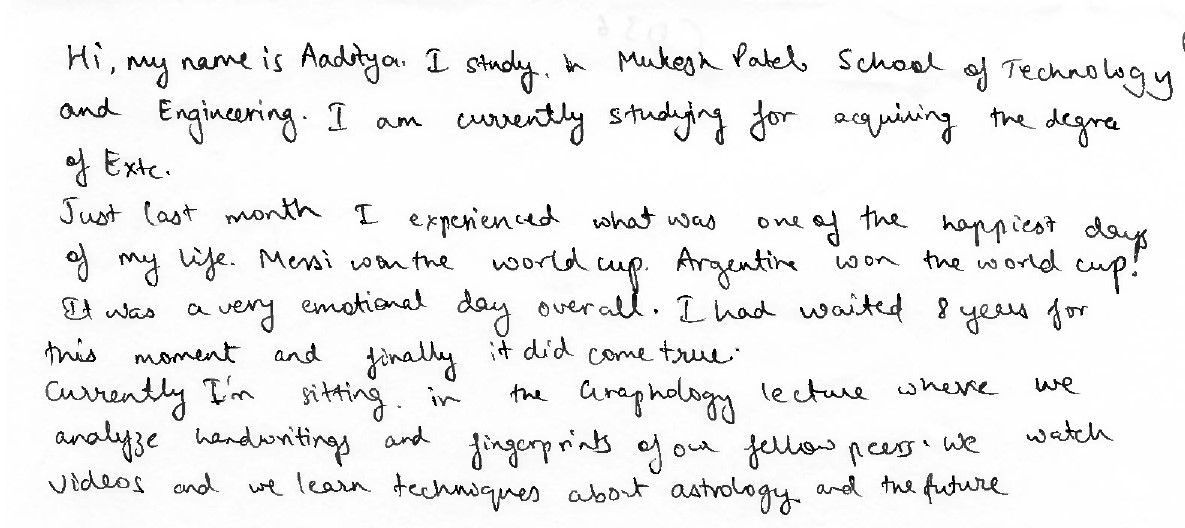 Hi, my name is Aaditya. I study in Mukesh Patel School of Technology
and Engineering. I am currently studying for acquiring the degree
of Extc.
Just last month I experienced what was one of the happiest days
of my life. Messi won the world cup. Argentina won the world cup!
It was a very emotional day overall. I had waited 8 years for
this moment and finally it did come true.
Currently I'm sitting in the Graphology lecture where we
analyze handwritings and fingerprints of our fellow peers. We watch
videos and we learn techniques about astrology and the future